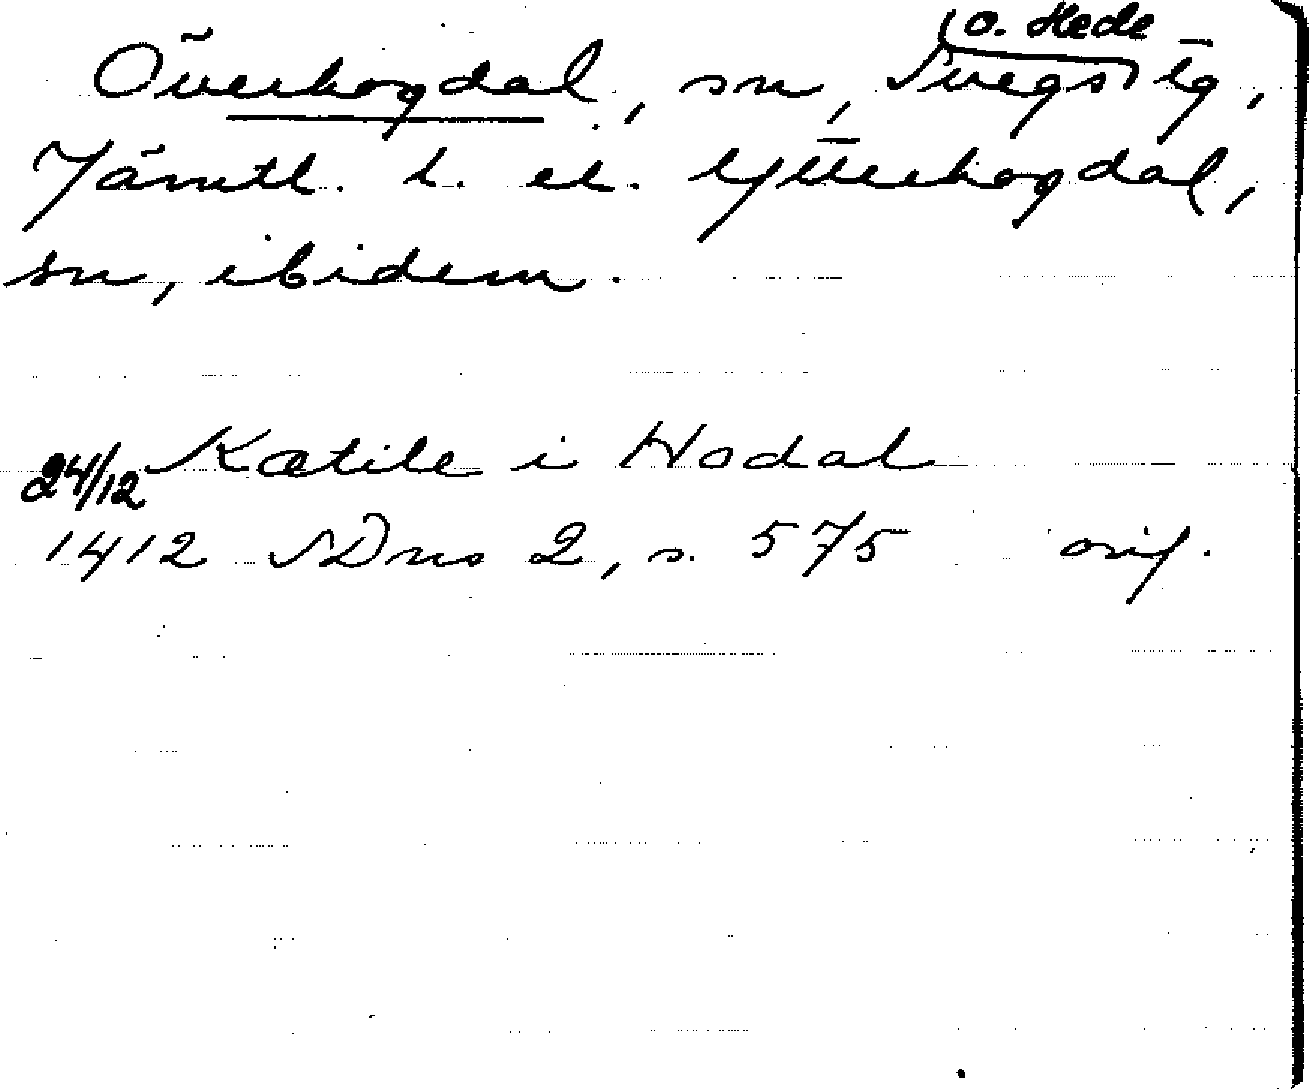 (o. Hede
Överhogdal, sn, Svegs) tg,
Jämtl. l. el. Ytterhogdal,
sn, ibidem.
24/12 Kætile i Hodal
1412 SDns 2, s. 575 orig.